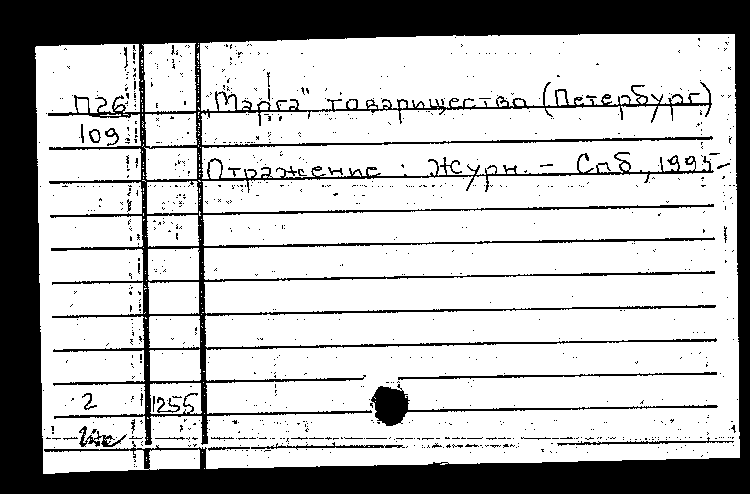 П26 „Марга", товарищества (Петербург)
109
Отражение : Журн. – Спб., 1995–
2 1255